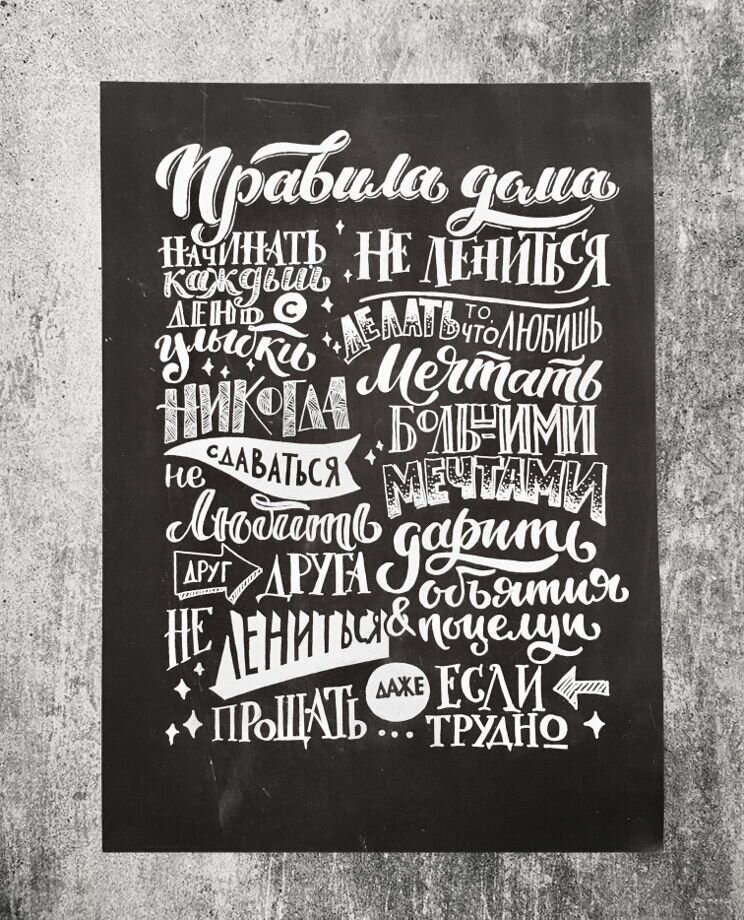 Правила дома
НАЧИНАТЬ
каждый
ДЕНЬ С
улыбки
НИКОГДА
не СДАВАТЬСЯ
Любить
ДРУГ ДРУГА
НЕ ЛЕНИТЬСЯ
НЕ ЛЕНИТЬСЯ
ДЕЛАТЬ ТО, ЧТО ЛЮБИШЬ
Мечтать
БОЛЬШИМИ
МЕЧТАМИ
дарить
объятия
& поцелуи
ПРОЩАТЬ ДАЖЕ ЕСЛИ
... ТРУДНО